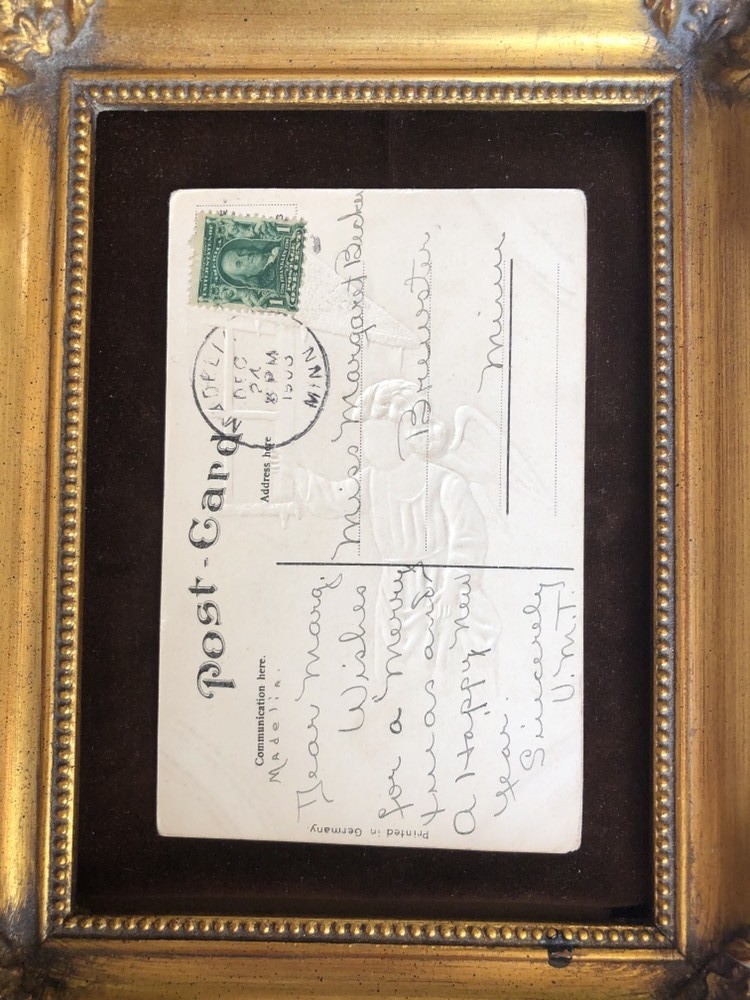 Post-Card
Communication here.
Address here
Madelia.
Dear Marg.
Wishes
for a "Merry
Xmas and
A Happy New
Year.
Sincerely
V.M.T.
Miss Margaret Becker
Brewster,
Minn
DEC
24
8 PM
MINN
ONE
1 1
Printed in Germany.